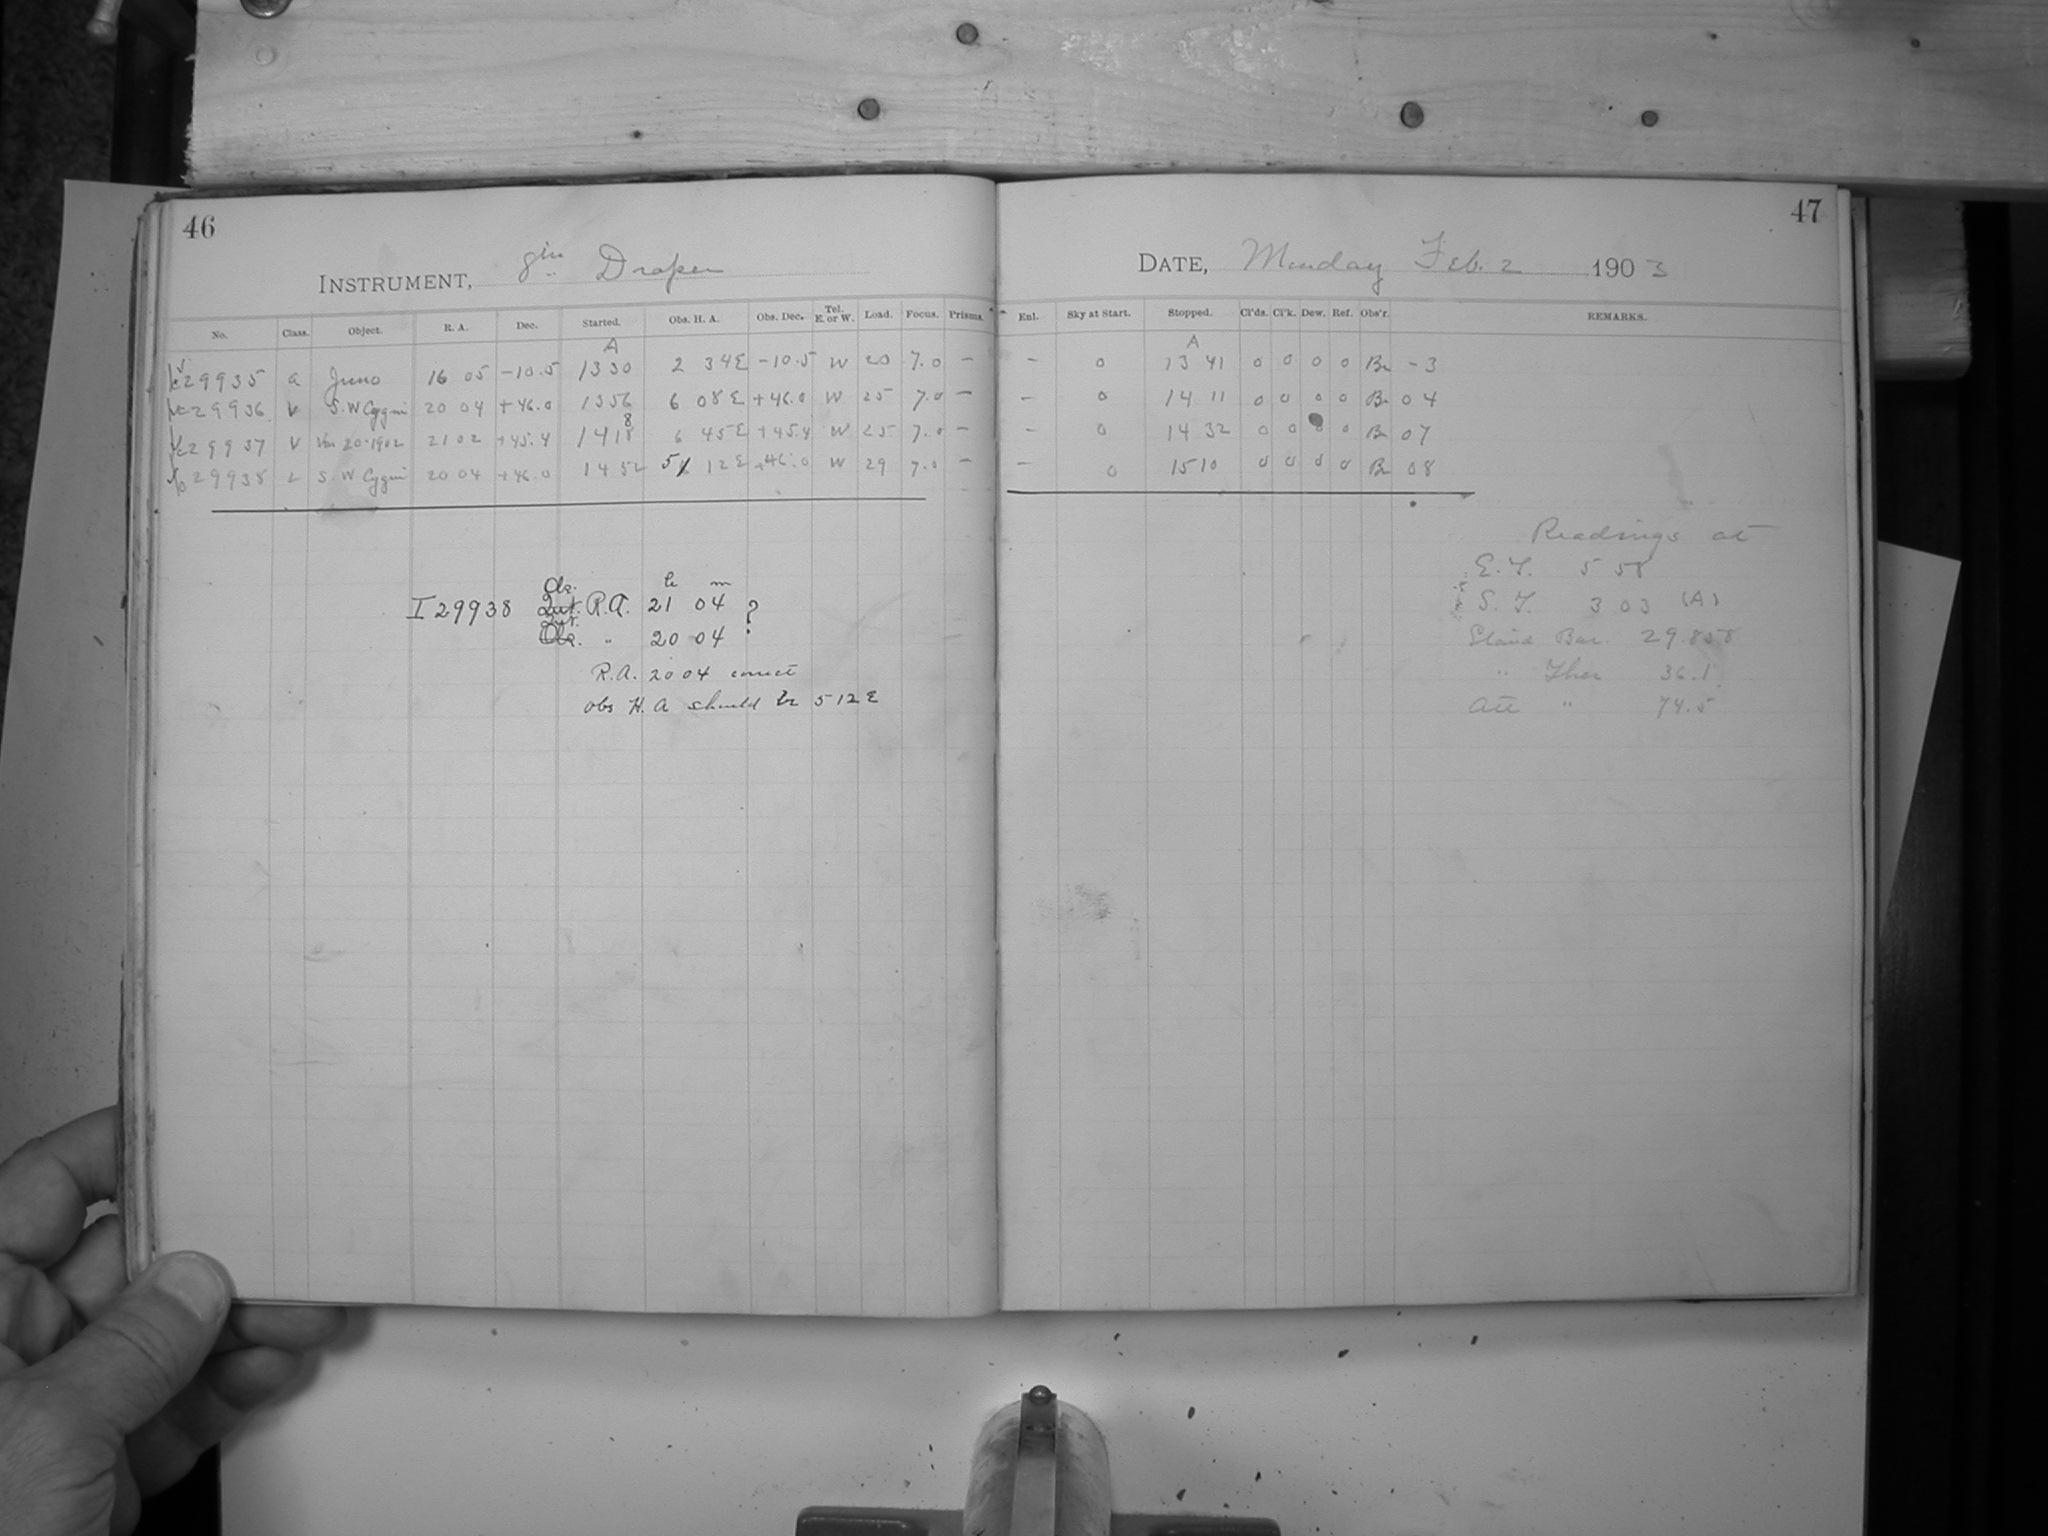 46
INSTRUMENT, 8 in Draper
No. Class. Object. R. A. Dec. Started. Obs. H. A. Obs. Dec. Tel. E. or W. Load. Focus. Prisms.
A
29935 a Juno 16 05 -10.5 1330 2 34E -10.5 W 20 7.0 -
29936 V S.W Cygni 20 04 +46.0 1356 6 08 E +46.0 W 25 7.0 -
8
29937 V Var 20.1902 21 02 +45.4 1418 6 45E +45.4 W 25 7.0 -
29938 S. W Cygni 20 04 +46.0 1452 5 12 E +46.0 W 29 7.0 -
I 29938 Obs. R.A. 21 h 04 m ?
Int. Obs. " 20 04
R.A. 20 04 correct
Obs H. A should be 5 12 E
47
DATE, Monday Feb. 2 1903
Enl. Sky at Start. Stopped. Cl'ds. Cl'k. Dew. Ref. Obs'r. REMARKS.
A
- 0 13 41 0 0 0 0 Br -3
- 0 14 11 0 0 0 0 Br 04
- 0 14 32 0 0 0 0 Br 07
- 0 15 10 0 0 0 0 Br 08
Readings at
E. T. 5 58
S. T. 3 03 (A)
Stand Bar. 29.858
" Ther 36.1
Att " 74.5